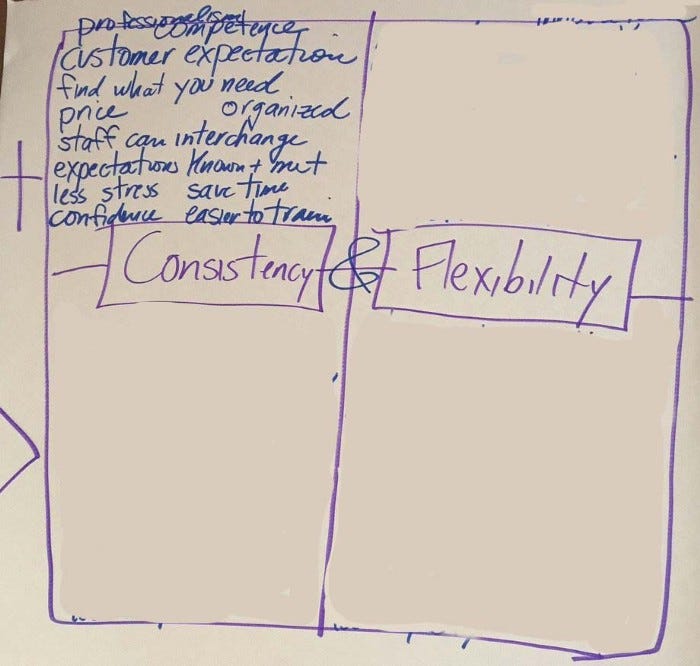 professionalism competence
customer expectation
find what you need
price organized
staff can interchange
expectations known + met
less stress save time
confidence easier to train
+
Consistency & Flexibility